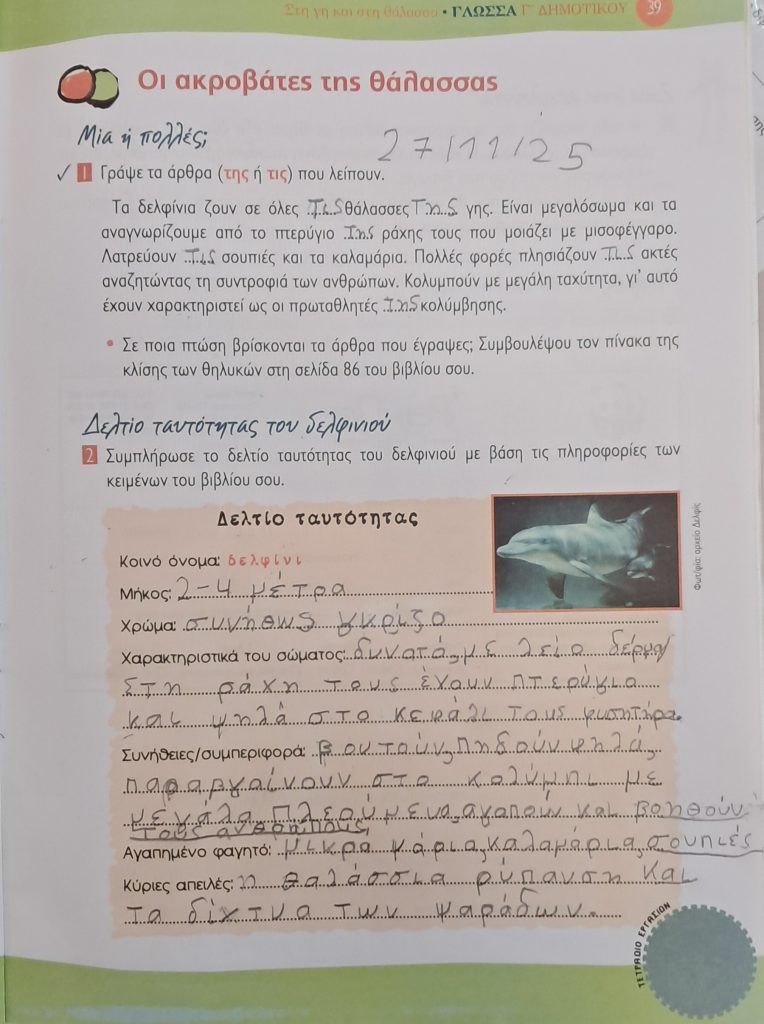 Στη γη και στη θάλασσα • ΓΛΩΣΣΑ Γ΄ ΔΗΜΟΤΙΚΟΥ 39
Οι ακροβάτες της θάλασσας
Μία ή πολλές;
27/11/25
✓ 1 Γράψε τα άρθρα (της ή τις) που λείπουν.
Τα δελφίνια ζουν σε όλες τις θάλασσες της γης. Είναι μεγαλόσωμα και τα
αναγνωρίζουμε από το πτερύγιο της ράχης τους που μοιάζει με μισοφέγγαρο.
Λατρεύουν τις σουπιές και τα καλαμάρια. Πολλές φορές πλησιάζουν τις ακτές
αναζητώντας τη συντροφιά των ανθρώπων. Κολυμπούν με μεγάλη ταχύτητα, γι' αυτό
έχουν χαρακτηριστεί ως οι πρωταθλητές της κολύμβησης.
• Σε ποια πτώση βρίσκονται τα άρθρα που έγραψες; Συμβουλέψου τον πίνακα της
κλίσης των θηλυκών στη σελίδα 86 του βιβλίου σου.
Δελτίο ταυτότητας του δελφινιού
2 Συμπλήρωσε το δελτίο ταυτότητας του δελφινιού με βάση τις πληροφορίες των
κειμένων του βιβλίου σου.
Δελτίο ταυτότητας
Κοινό όνομα: δελφίνι
Μήκος: 2-4 μέτρα
Χρώμα: συνήθως γκρίζο
Χαρακτηριστικά του σώματος: δυνατά, με λείο δέρμα
στη ράχη τους έχουν πτερύγιο
και ψηλά στο κεφάλι τους φυσητήρα.
Συνήθειες/συμπεριφορά: βουτούν, πηδούν ψηλά,
παραβγαίνουν στο κολύμπι με
μεγάλα πλεούμενα, αγαπούν και βοηθούν
τους ανθρώπους,
Αγαπημένο φαγητό: μικρά ψάρια, καλαμάρια, σουπιές
Κύριες απειλές: η θαλάσσια ρύπανση και
τα δίχτυα των ψαράδων.
Φωτ/φία: αρχείο Δελφίς
ΤΕΤΡΑΔΙΟ ΕΡΓΑΣΙΩΝ